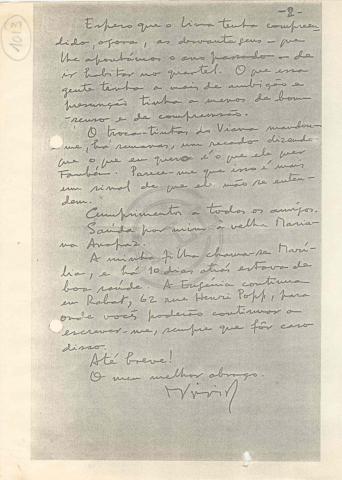 1013
-2-
Espero que o Lima tenha compreen-
dido, agora, as desvantagens — que
lhe apontámos o ano passado — de
ir habitar no quartel. O que essa
gente tenha a mais de ambição e
presunção tinha a menos de bom-
senso e de compreensão.
O troca-tintas do Viana mandou-
me, há semanas, um recado dizendo
que o que eu quero é o que ele quer
também. Parece-me que isso é mais
um sinal de que ele não se enten-
dem.
Cumprimentos a todos os amigos.
Saúda por mim a velha Maria-
na
A minha filha chama-se Marí-
lia, e há 10 dias atrás estava de
boa saúde. A Eugénia continua
em Rabat, 62 rue Henri Popp, para
onde vocês poderão continuar a
escrever-me, sempre que fôr caso
disso.
Até breve!
O meu melhor abraço.